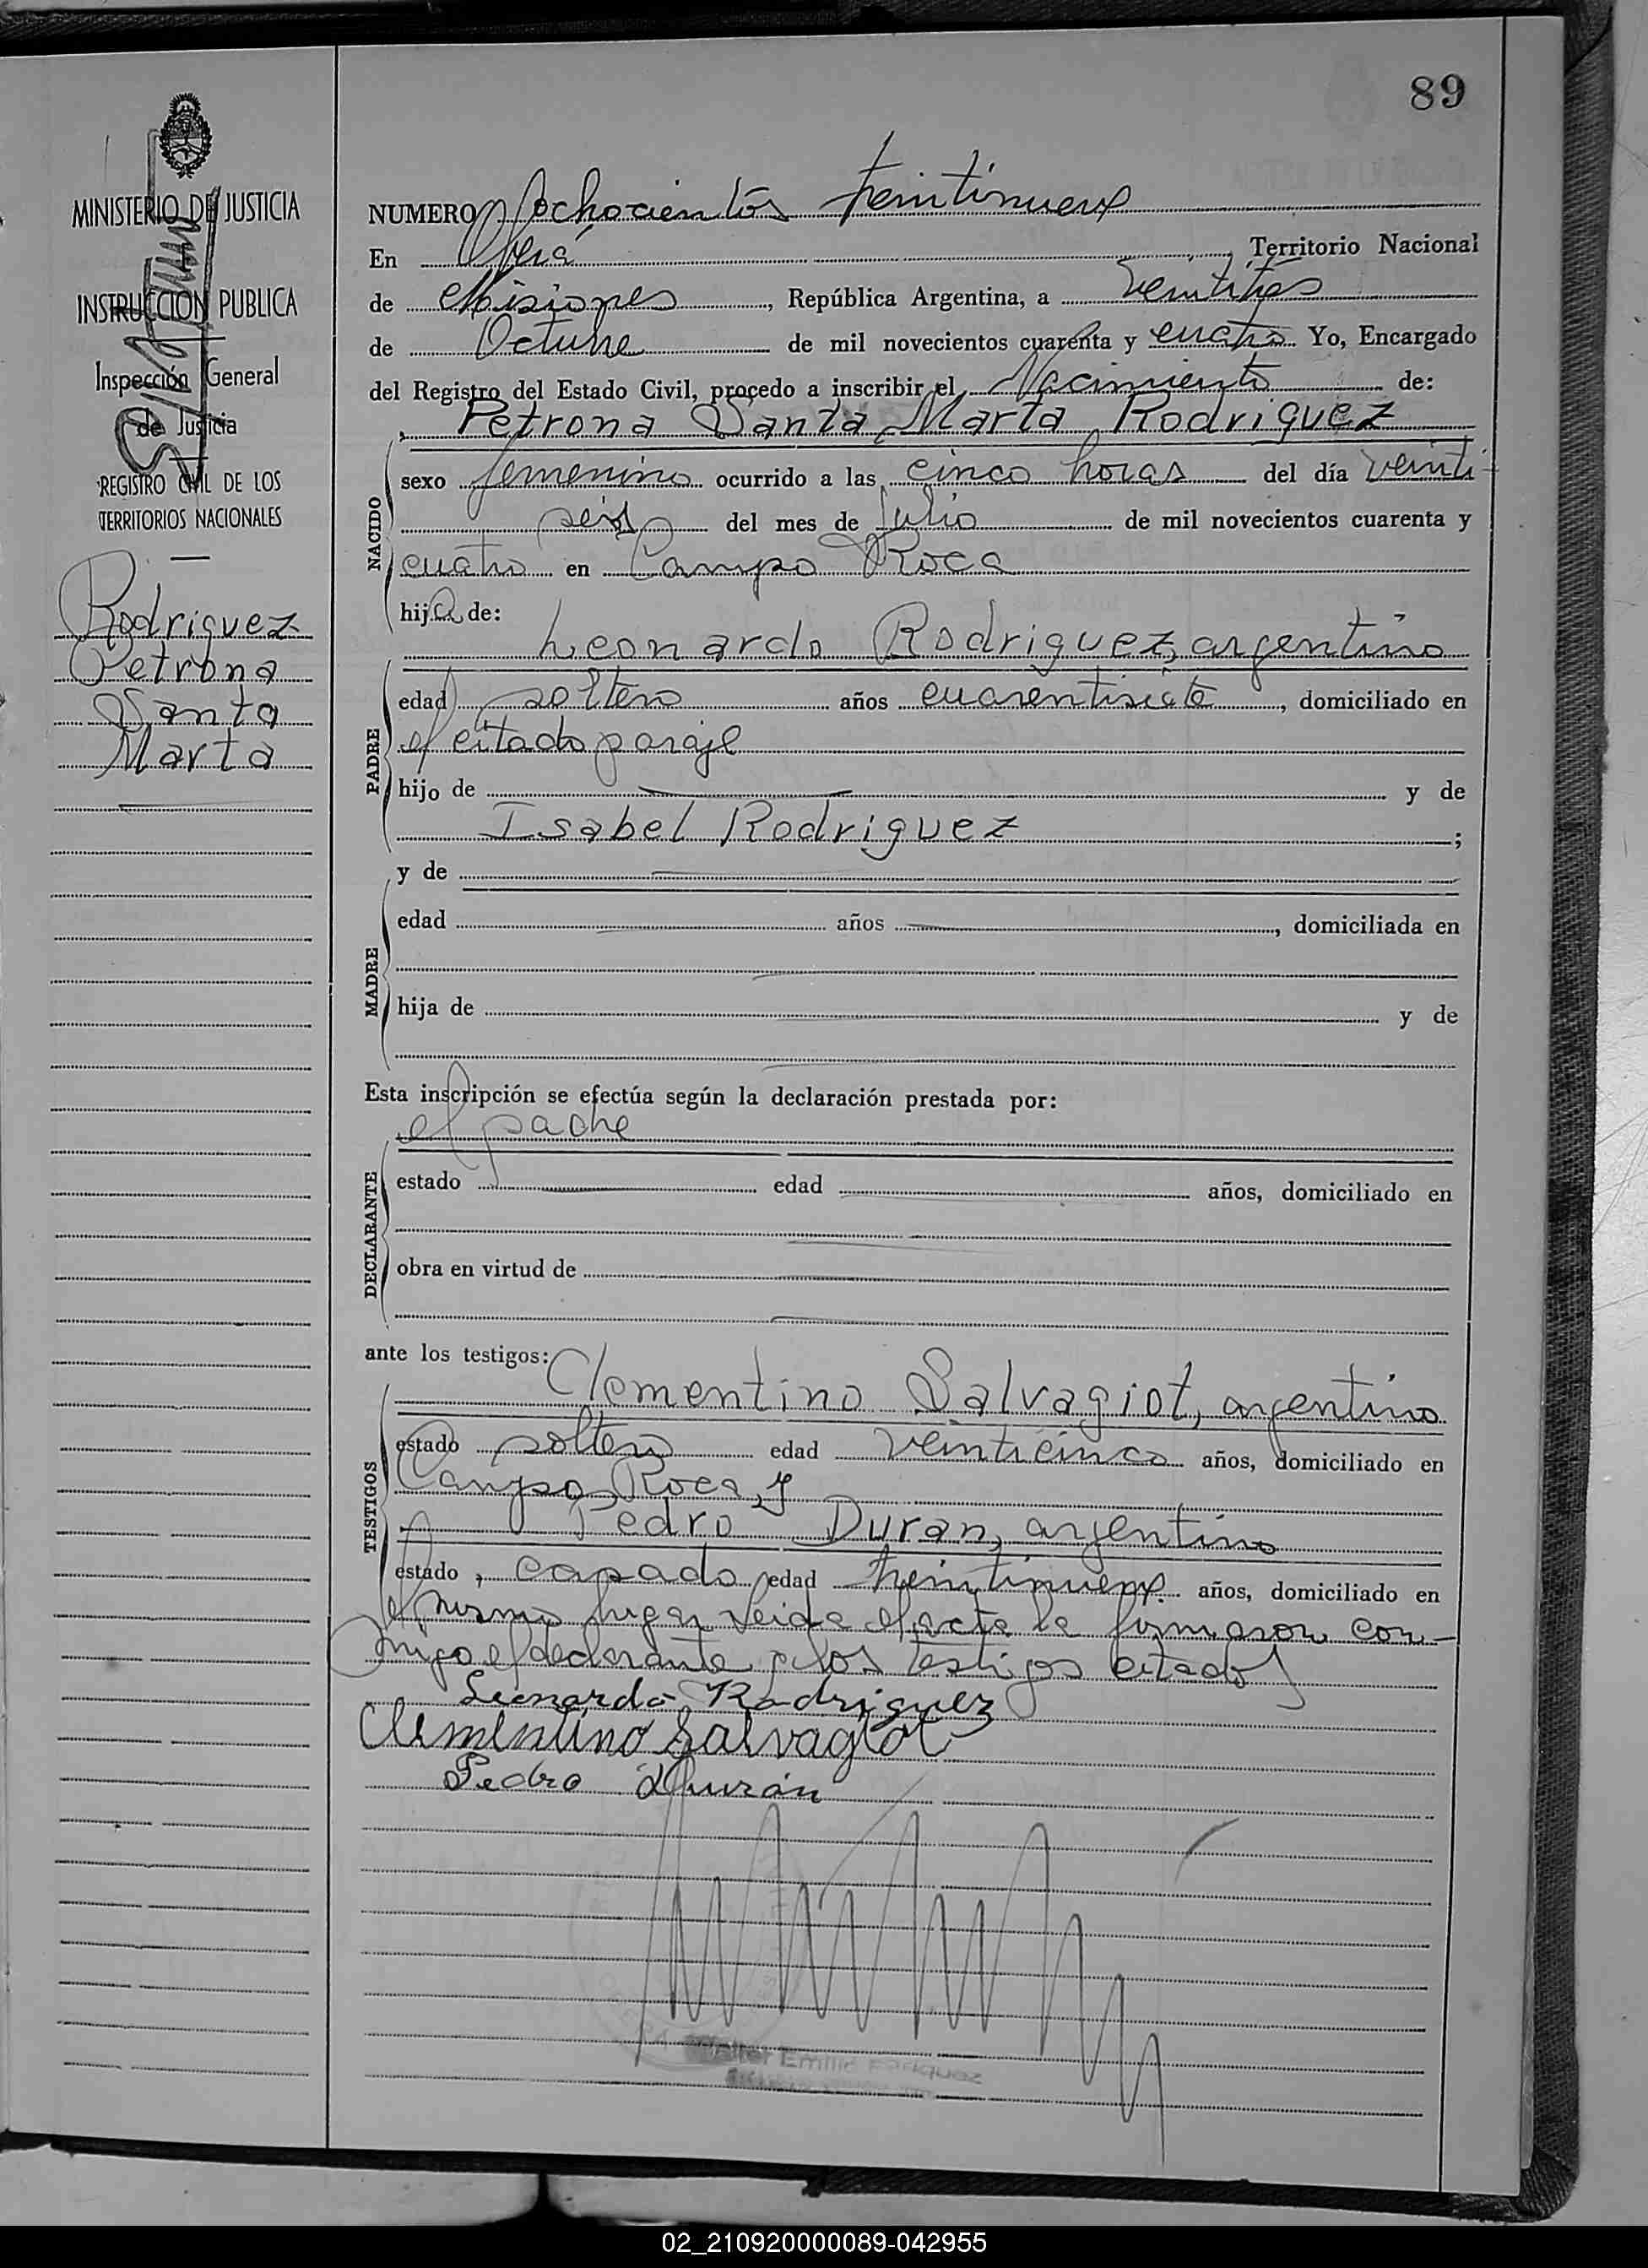 89
MINISTERIO DE JUSTICIA
INSTRUCCION PUBLICA
Inspección General
de Justicia
REGISTRO CIVIL DE LOS
TERRITORIOS NACIONALES
Rodriguez
Petrona
Santa
Marta
NUMERO ochocientos treintinueve
En Oberá, Territorio Nacional
de Misiones, República Argentina, a veintitres
de Octubre de mil novecientos cuarenta y cuatro Yo, Encargado
del Registro del Estado Civil, procedo a inscribir el Nacimiento de:
Petrona Santa Marta Rodriguez
NACIDO
sexo femenino ocurrido a las cinco horas del día veinti-
seis del mes de Julio de mil novecientos cuarenta y
cuatro en Campo Roca
hija de:
Leonardo Rodriguez, argentino
PADRE
edad soltero años cuarentisiete, domiciliado en
el citado paraje
hijo de y de
Isabel Rodriguez ;
y de
MADRE
edad años , domiciliada en
hija de y de
Esta inscripción se efectúa según la declaración prestada por:
el padre
DECLARANTE
estado edad años, domiciliado en
obra en virtud de
ante los testigos:
Clementino Salvagiot, argentino
TESTIGOS
estado soltero edad veinticinco años, domiciliado en
Campo Roca y
Pedro Duran, argentino
estado, casado edad treintinueve años, domiciliado en
el mismo lugar leida el acta la firmaron con-
migo el declarante y los testigos citados
Leonardo Rodriguez
Clementino Salvagiot
Pedro Durán
Emilio
02_210920000089-042955